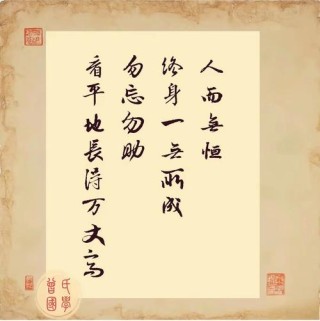 人而無恒
終身一無所成
勿忘勿助
看平地長得万丈高
曾國氏學